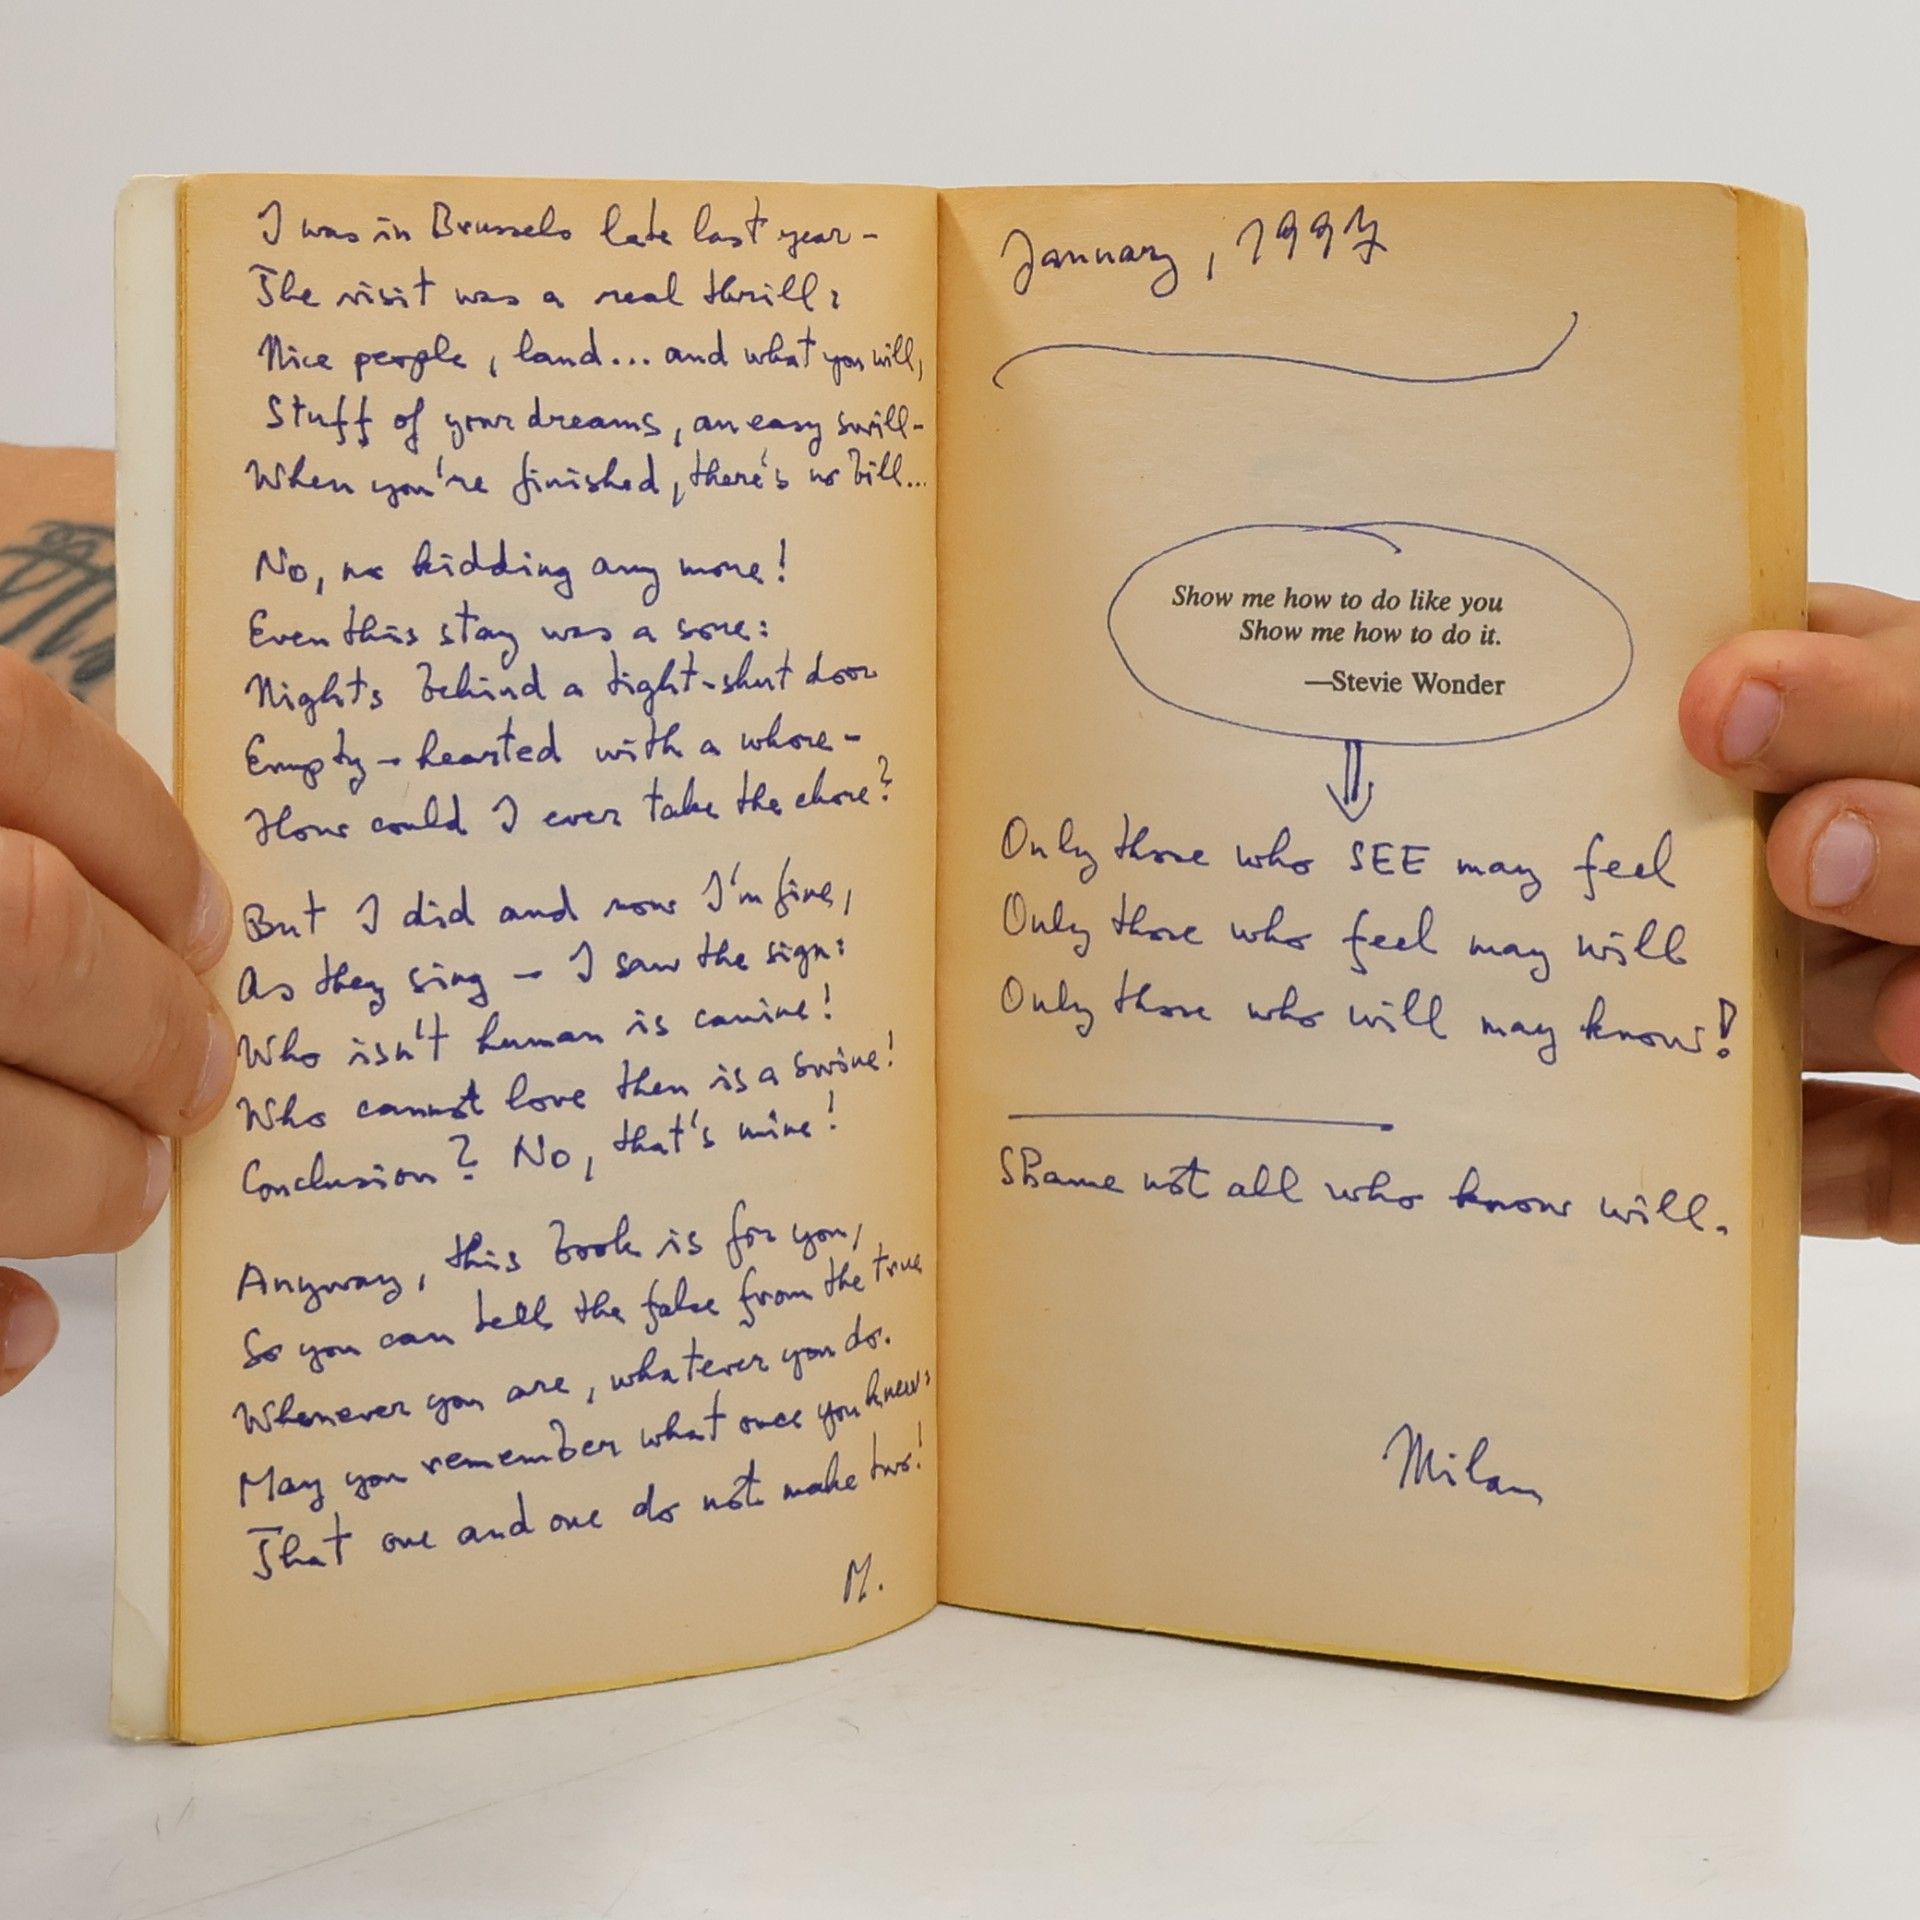 I was in Brussels late last year –
The visit was a real thrill:
Nice people, land... and what you will,
Stuff of your dreams, an easy swill –
When you're finished, there's no bill...
No, no kidding any more!
Even this stay was a sore:
Nights behind a tight-shut door
Empty-hearted with a whore –
How could I ever take the chore?
But I did and now I'm fine,
As they sing – I saw the sign:
Who isn't human is canine!
Who cannot love then is a swine!
Conclusion? No, that's mine!
Anyway, this book is for you,
So you can tell the false from the true
Whenever you are, whatever you do.
May you remember what once you knew:
That one and one do not make two!
M.
January, 1997
Show me how to do like you
Show me how to do it.
—Stevie Wonder
Only those who SEE may feel
Only those who feel may will
Only those who will may know!
Shame not all who know will.
Milan